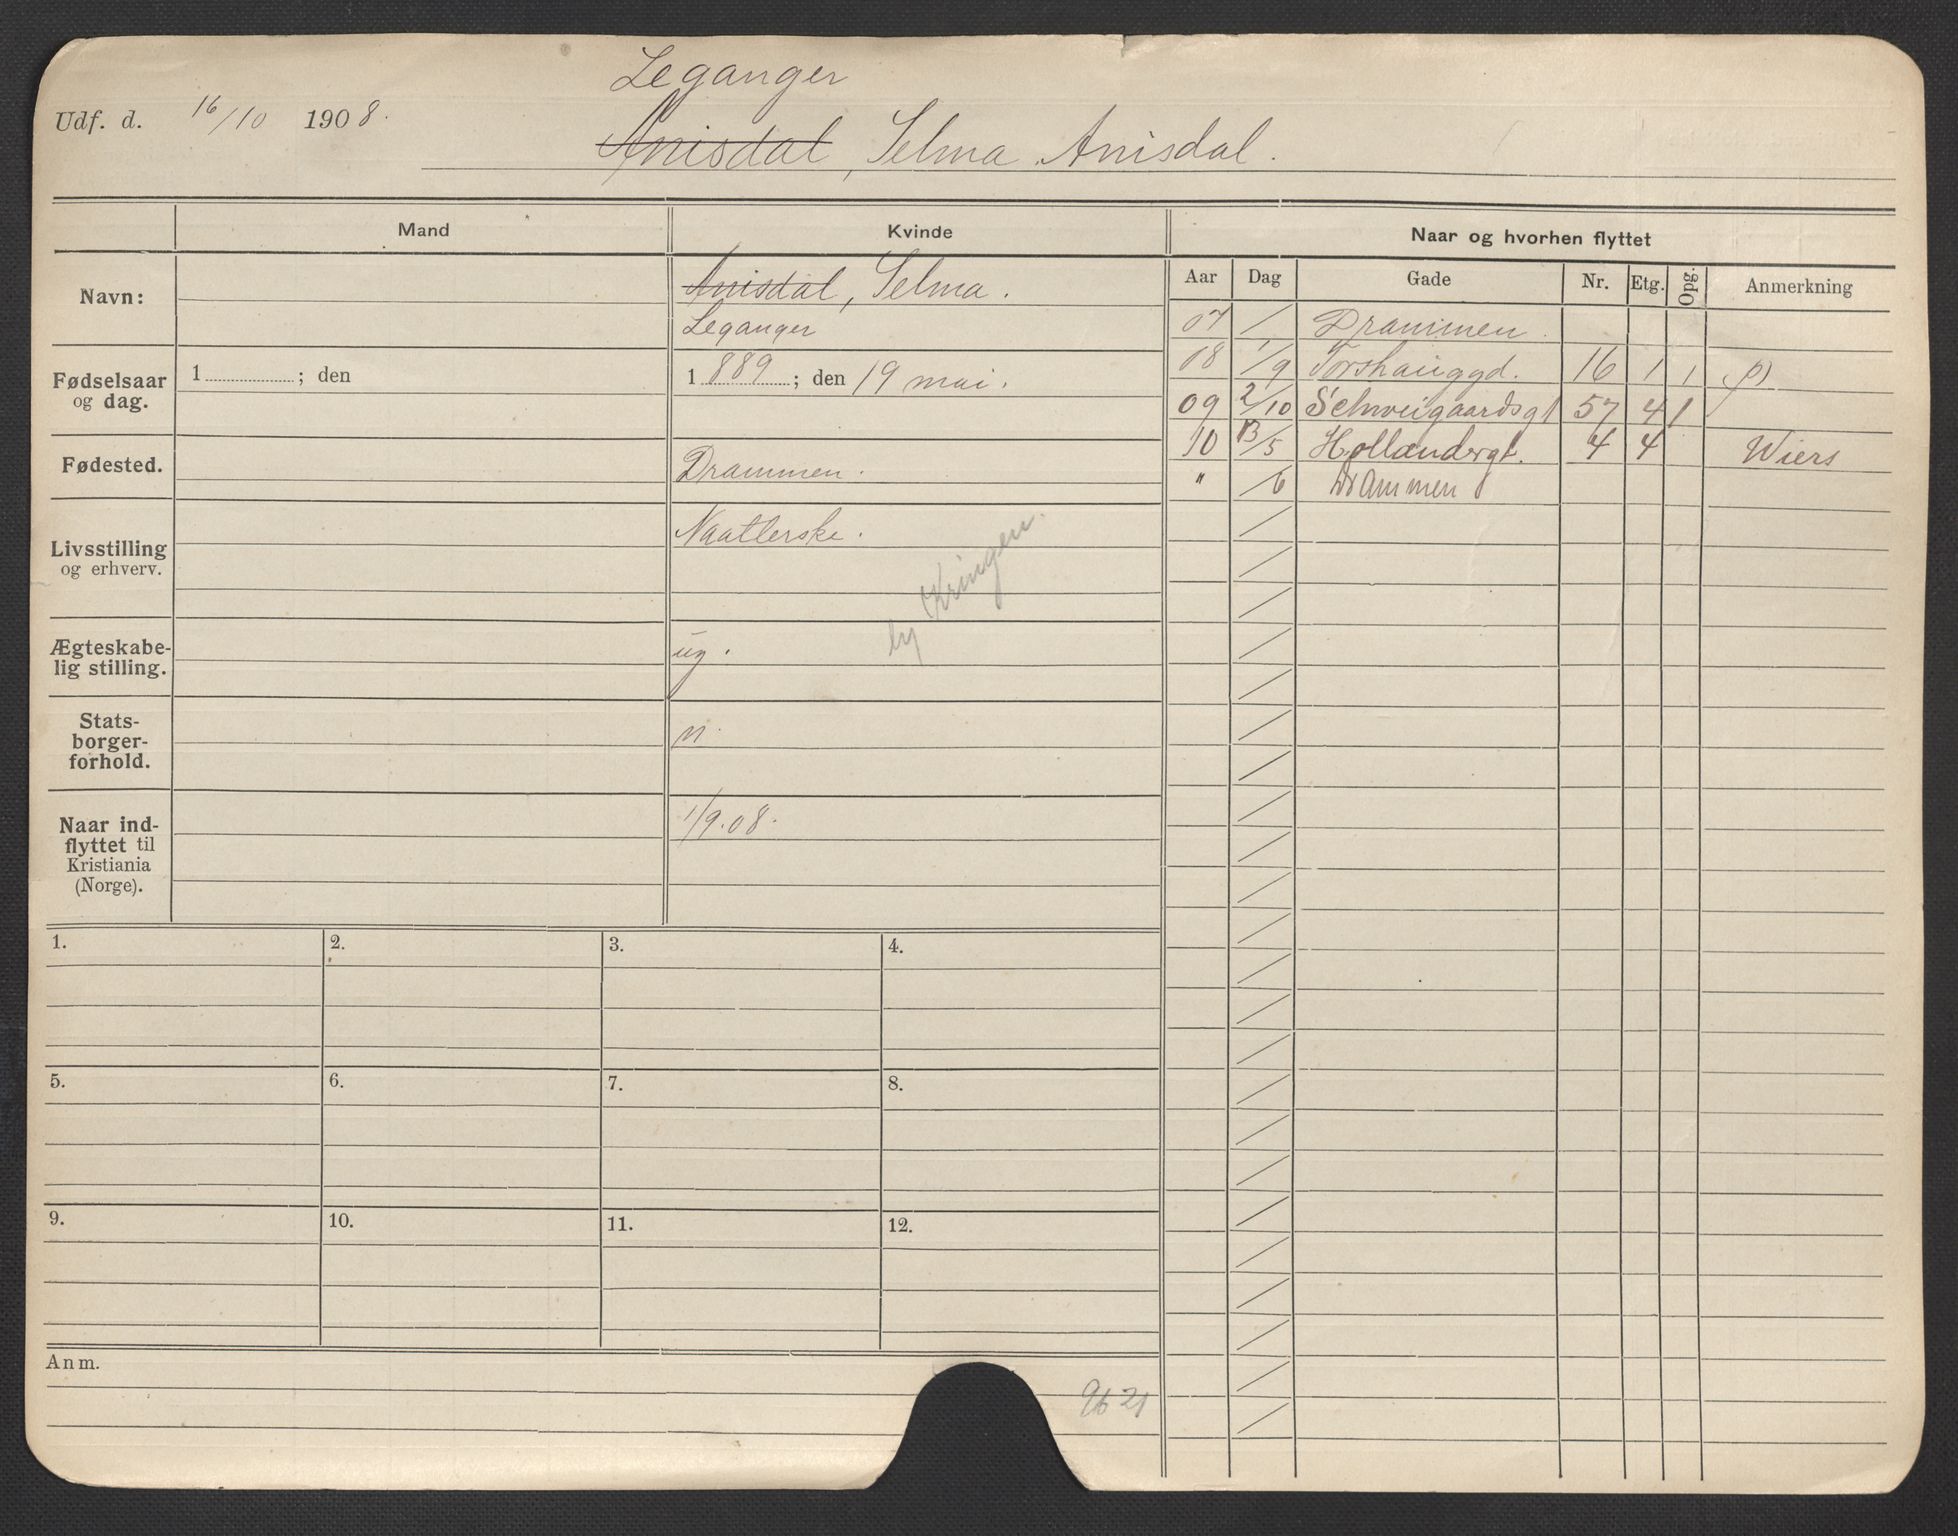 Leganger
Udf. d. 16/10 1908.
Anisdal, Selma Anisdal.
Mand
Kvinde
Naar og hvorhen flyttet
Navn:
Anisdal, Selma.
Leganger
Fødselsaar og dag.
1 ; den
1889; den 19 mai.
Fødested.
Drammen.
Livsstilling og erhverv.
Naatlerske.
by Kringen.
Ægteskabe-
lig stilling.
ug.
Stats-
borger-
forhold.
n.
Naar ind-
flyttet til
Kristiania
(Norge).
1/9.08.
Aar Dag Gade Nr. Etg. Opg. Anmerkning
07 / Drammen.
08 1/9 Torshauggd. 16 1 1
09 2/10 Schweigaardsgt 57 4 1
10 13/5 Hollændergt. 4 4 Wiers
" /6 Drammen
1. 2. 3. 4.
5. 6. 7. 8.
9. 10. 11. 12.
Anm.
9621